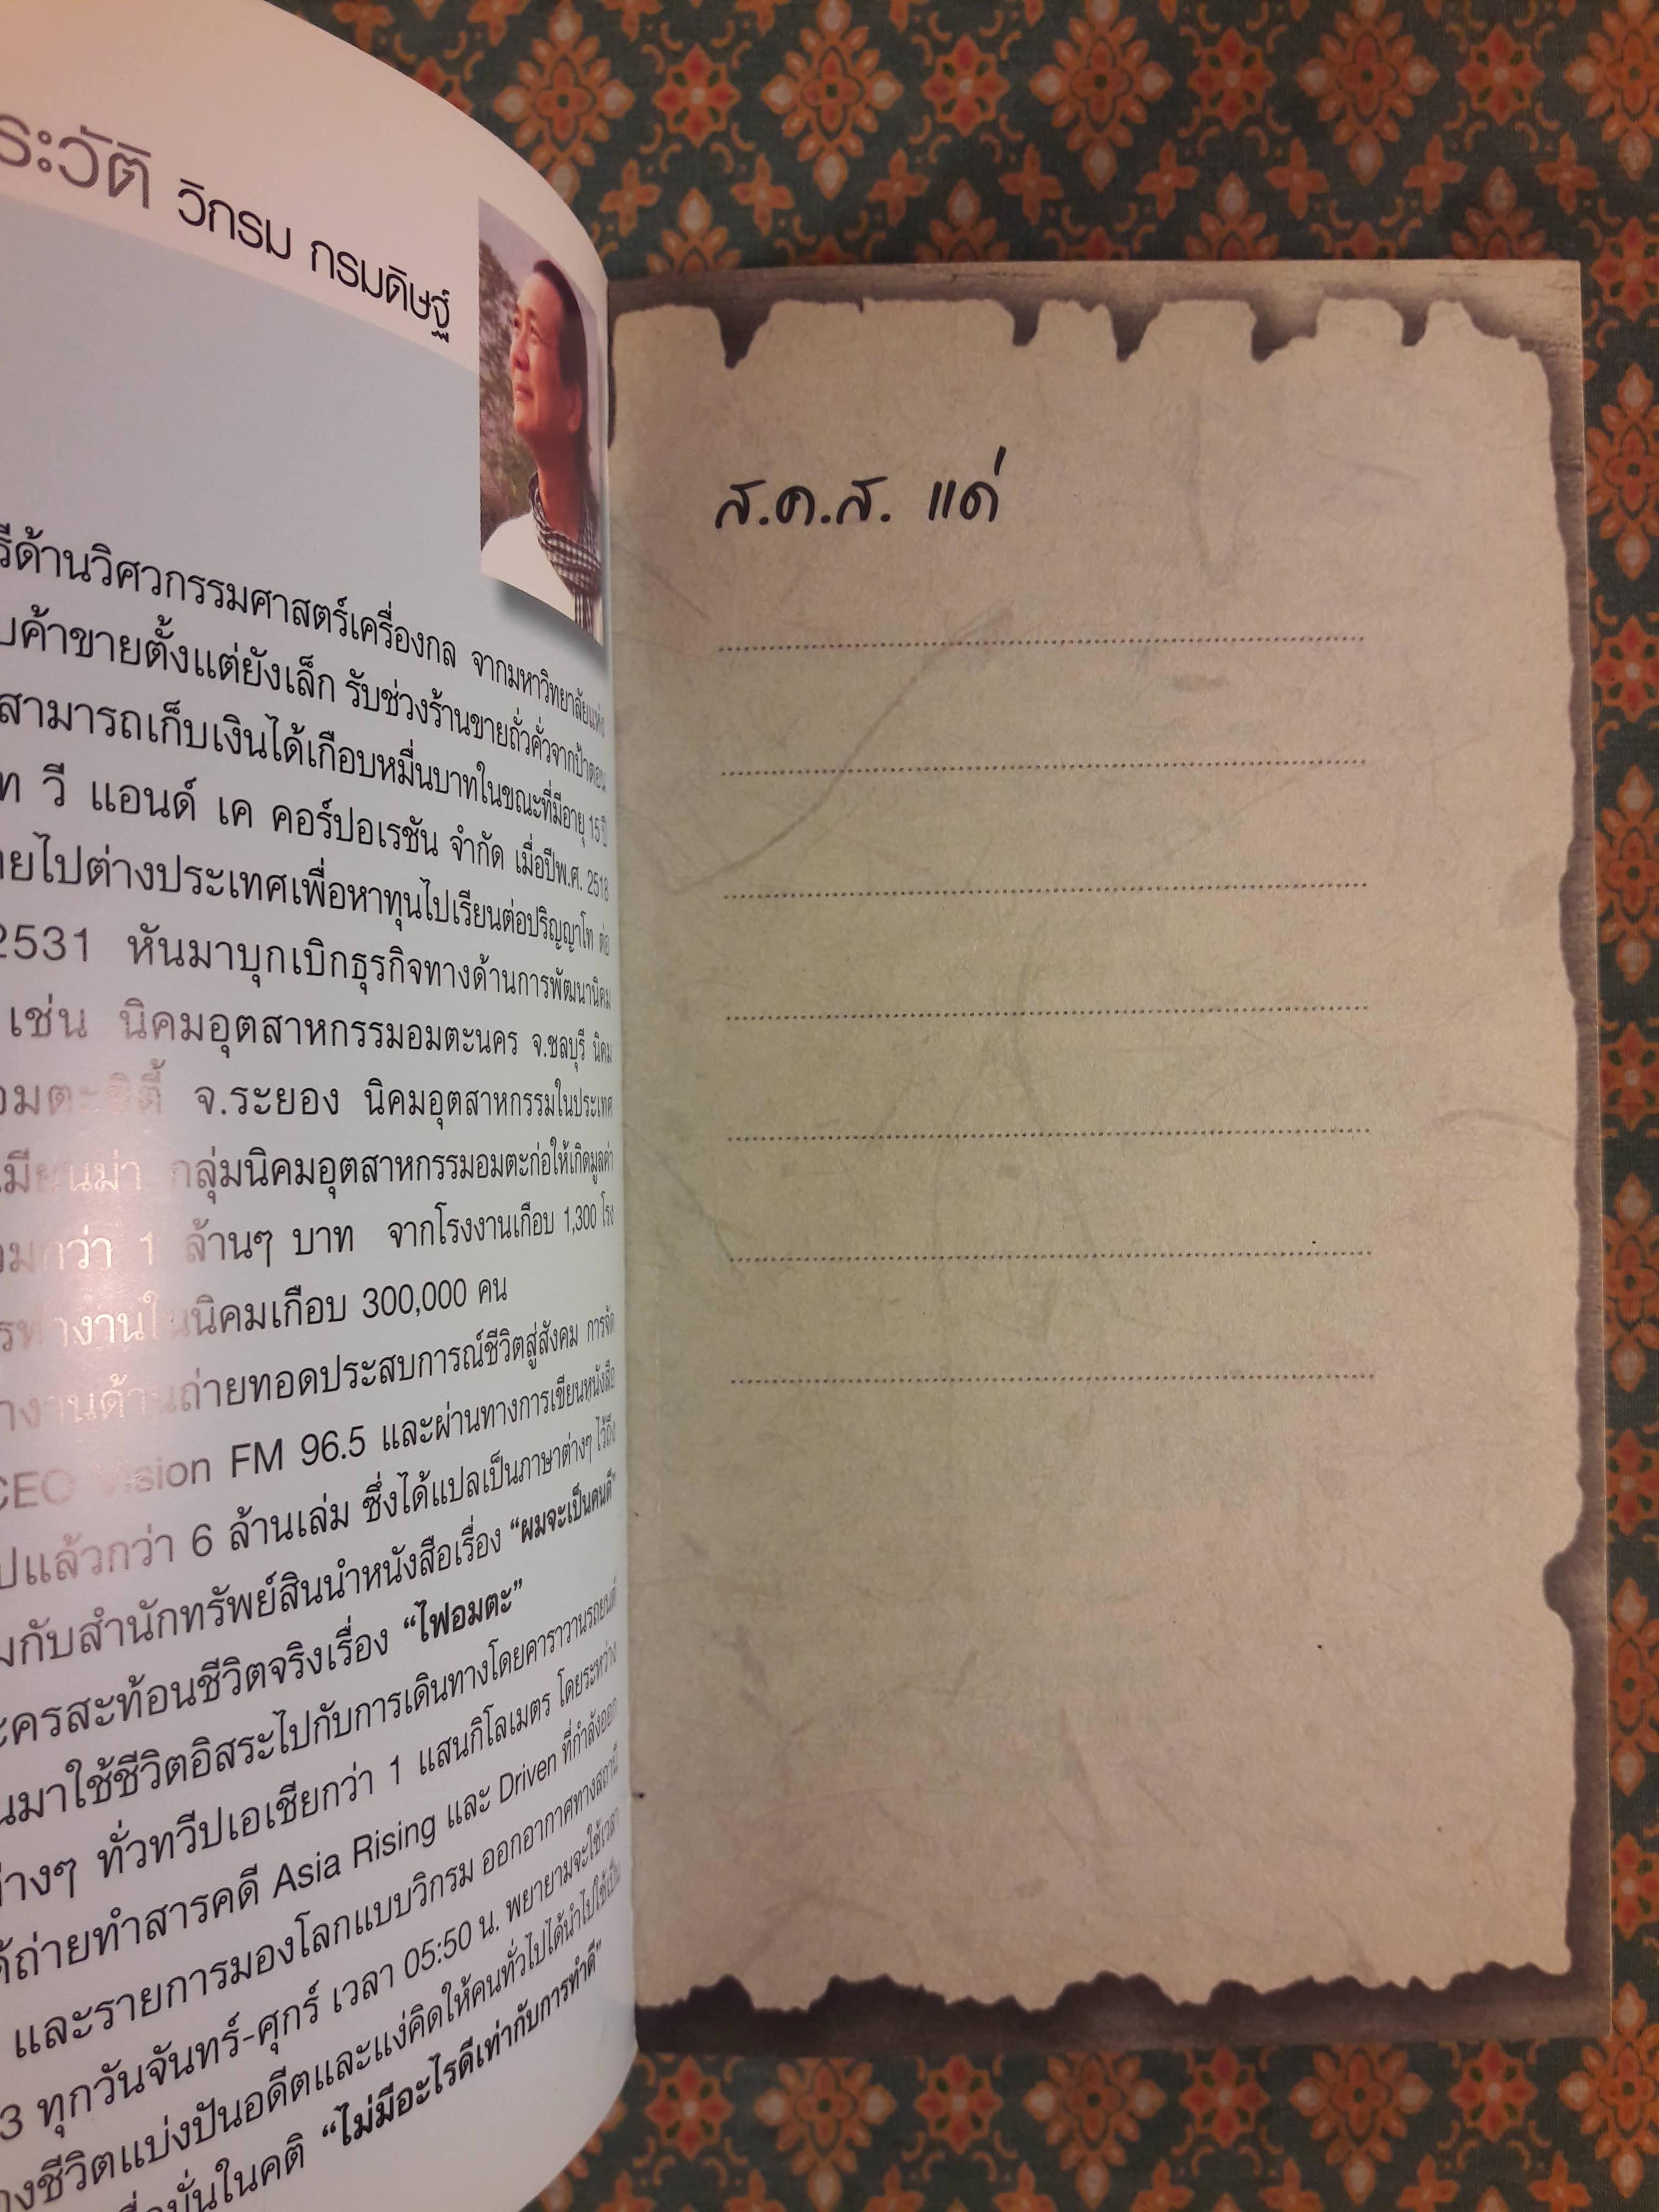 ระวัติ วิกรม กรมดิษฐ์
รีด้านวิศวกรรมศาสตร์เครื่องกล จากมหาวิทยาลัยแห่ง
บค้าขายตั้งแต่ยังเล็ก รับช่วงร้านขายถั่วคั่วจากป้าตอน
สามารถเก็บเงินได้เกือบหมื่นบาทในขณะที่มีอายุ 15 ปี
ท วี แอนด์ เค คอร์ปอเรชัน จำกัด เมื่อปีพ.ศ. 2518
ายไปต่างประเทศเพื่อหาทุนไปเรียนต่อปริญญาโท ต่อ
2531 หันมาบุกเบิกธุรกิจทางด้านการพัฒนานิคม
เช่น นิคมอุตสาหกรรมอมตะนคร จ.ชลบุรี นิคม
อมตะซิตี้ จ.ระยอง นิคมอุตสาหกรรมในประเทศ
เมียนม่า กลุ่มนิคมอุตสาหกรรมอมตะก่อให้เกิดมูลค่า
วมกว่า 1 ล้านๆ บาท จากโรงงานเกือบ 1,300 โรง
รทำงานในนิคมเกือบ 300,000 คน
างานด้านถ่ายทอดประสบการณ์ชีวิตสู่สังคม การจัด
CEO Vision FM 96.5 และผ่านทางการเขียนหนังสือ
ปแล้วกว่า 6 ล้านเล่ม ซึ่งได้แปลเป็นภาษาต่างๆ ไว้ถึง
มกับสำนักทรัพย์สินนำหนังสือเรื่อง “ผมจะเป็นคนดี”
ะครสะท้อนชีวิตจริงเรื่อง “ไฟอมตะ”
นมาใช้ชีวิตอิสระไปกับการเดินทางโดยคาราวานรถยนต์
ต่างๆ ทั่วทวีปเอเชียกว่า 1 แสนกิโลเมตร โดยระหว่าง
ด้ถ่ายทำสารคดี Asia Rising และ Driven ที่กำลังออก
และรายการมองโลกแบบวิกรม ออกอากาศทางสถานี
3 ทุกวันจันทร์-ศุกร์ เวลา 05:50 น. พยายามจะใช้เวลา
างชีวิตแบ่งปันอดีตและแง่คิดให้คนทั่วไปได้นำไปใช้เป็น
ชื่อมั่นในคติ “ไม่มีอะไรดีเท่ากับการทำดี”
ส.ค.ส. แด่